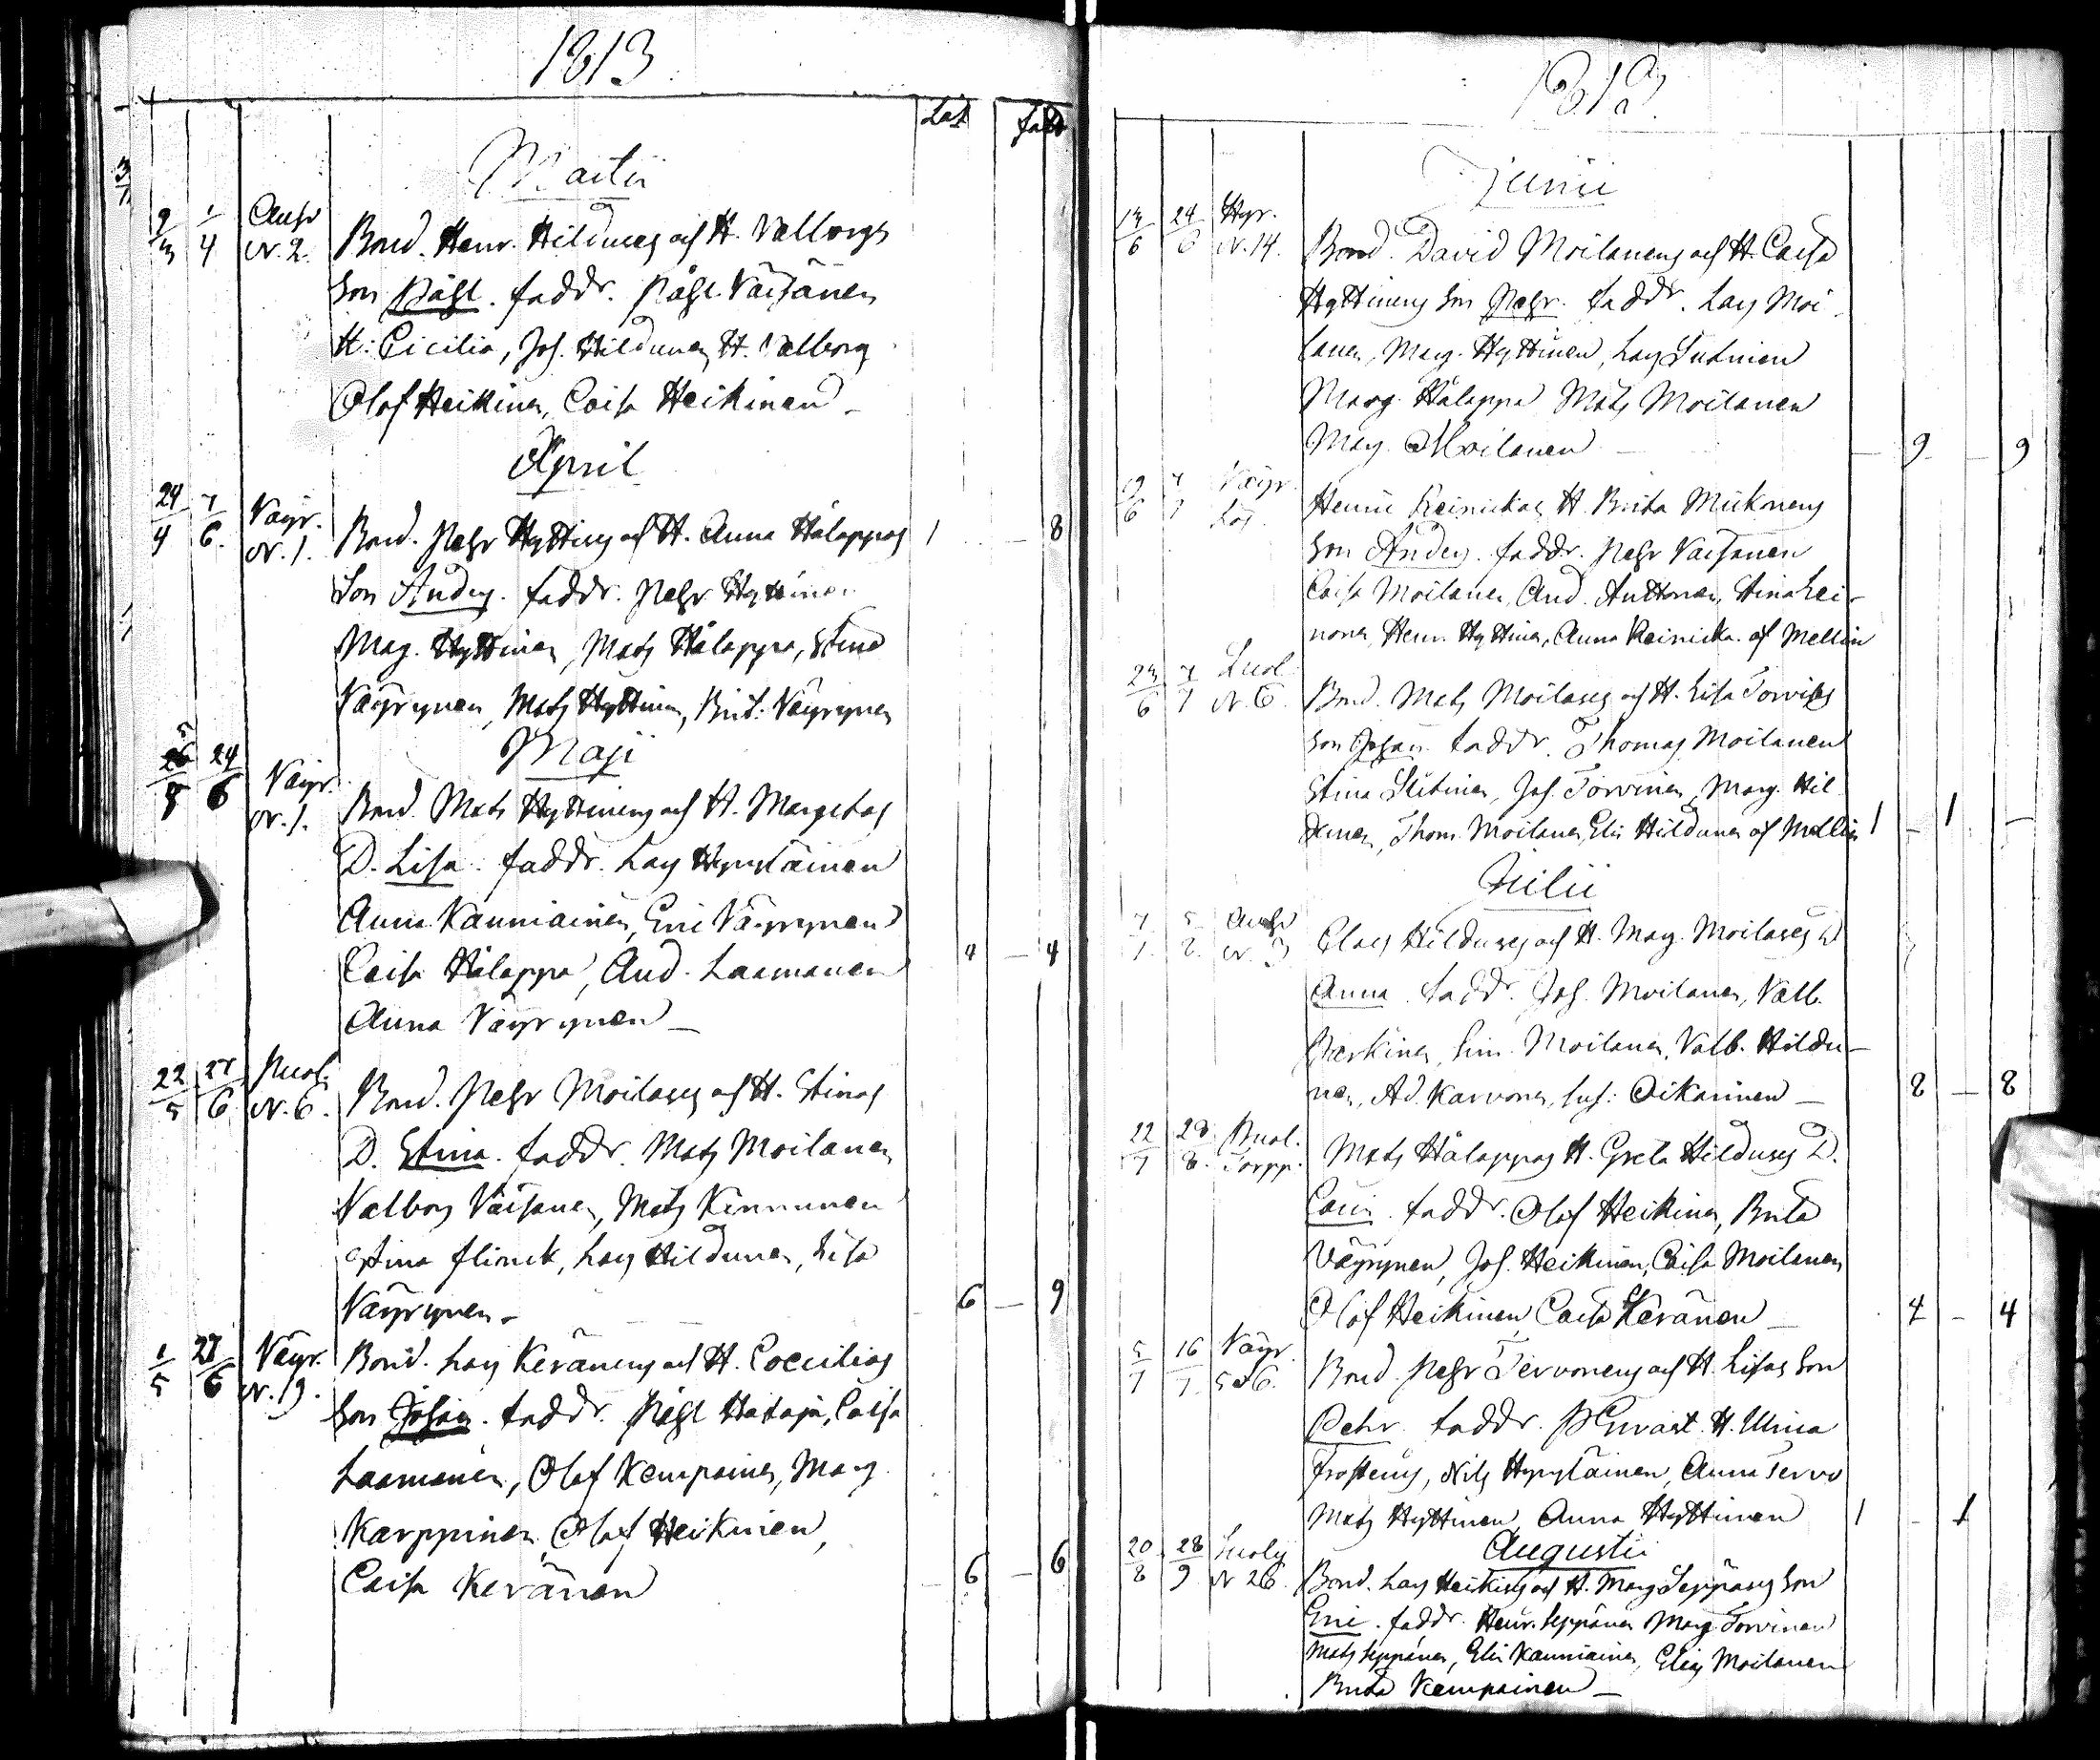 1813
Lat fadd
Martii
9/3 1/4 Auho N. 2. Bond. Henr. Hildunens och H. Valborgs
Son Påhl. faddr. Påhl Väisänen
H: Cicilia, Joh. Hildunen, H. Valborg
Olof Heikinen, Caisa Heikinen
April
24/4 7/6 Väyr. N. 1. Bond. Pehr Hyttines och H. Anna Hålappas 1 8
Son Anders. faddr. Pehr Hyttinen
Mag. Hyttinen, Mats Hålappa, Stina
Väyrynen, Mats Hyttinen, Brit: Väyrynen
Maji
24/6 Väyr. N. 1. Bond. Mats Hyttinens och H. Margetas
D. Lisa. faddr. Lars Hyryläinen
Anna Kauniainen, Eric Väyrynen
Caisa Hålappa, And. Laamanen 4 4
Anna Väyrynen
22/5 27/6 Puol. N. 6. Bond. Pehr Moilases och H. Stinas
D. Stina. faddr. Mats Moilanen
Valborg Väisänen, Mats Kinnunen
Stina Flinck, Lars Hildunen, Lisa
Väyrynen. 6 9
1/5 27/6 Väyr. N. 19. Bond. Lars Keränens och H. Coecilias
Son Johan. faddr. Påhl Hataja, Caisa
Laamanen, Olof Kempainen, Marg.
Karppinen, Olof Heikinen,
Caisa Keränen 6 6
1813
Junii
13/6 24/6 Hyr. N. 14. Bond. David Moilanens och H. Caisa
Hyttinens Son Pehr. faddr. Lars Moi
lanen, Marg. Hyttinen, Lars Sutinen
Marg. Hålappa Mats Moilanen
Marg. Moilanen 9 9
9/6 4/7 Väyr. Henric Reinickas H. Brita Mickonens
Son Anders. faddr. Pehr Väisänen
Caisa Moilanen, And. Anttonen, Stina Lei-
nonen, Henr. Hyttinen, Anna Reinicka. af Mellin
23/6 4/7 N. 6. Bond. Mats Moilases och H. Lisa Torvises
Son Johan. faddr. Thomas Moilanen
Stina Sutinen, Joh. Torvinen, Marg. Hil
dunen, Thom. Moilanen, Elis Hildunen af Mellin 1 1
Julii
Auho N. 3 Clas Hildunes och H. Marg. Moilases D
Anna. faddr. Joh. Moilanen, Valb.
Parkinen, Sim. Moilanen, Valb. Hildu-
nen, Ad. Karvonen, Sus: Oikarinen 8 8
22/7 28/8. Puol. Torpp. Mats Hålappas H. Greta Hildunes D.
Carin. faddr. Olof Heikinen, Brita
Väyrynen, Joh. Heikinen, Caisa Moilanen
Olof Heikinen, Caisa Keränen 4 4
5/7 16/7 Väyr. 5 & 6. Bond. Pehr Tervonens och H. Lisas Son
Pehr. faddr. H. Ulrica
Frosterus, Nils Hyryläinen, Anna Tervo
Mats Hyttinen Anna Hyttinen 1 1
Augusti
20/8 28/9 N 26. Bond. Lars Heikines och H. Marg Seppäses Son
Eric. faddr. Henr. Seppänen Marg Torvinen
Mats Seppänen, Elis Kauniainen, Elias Moilanen
Brita Kempainen